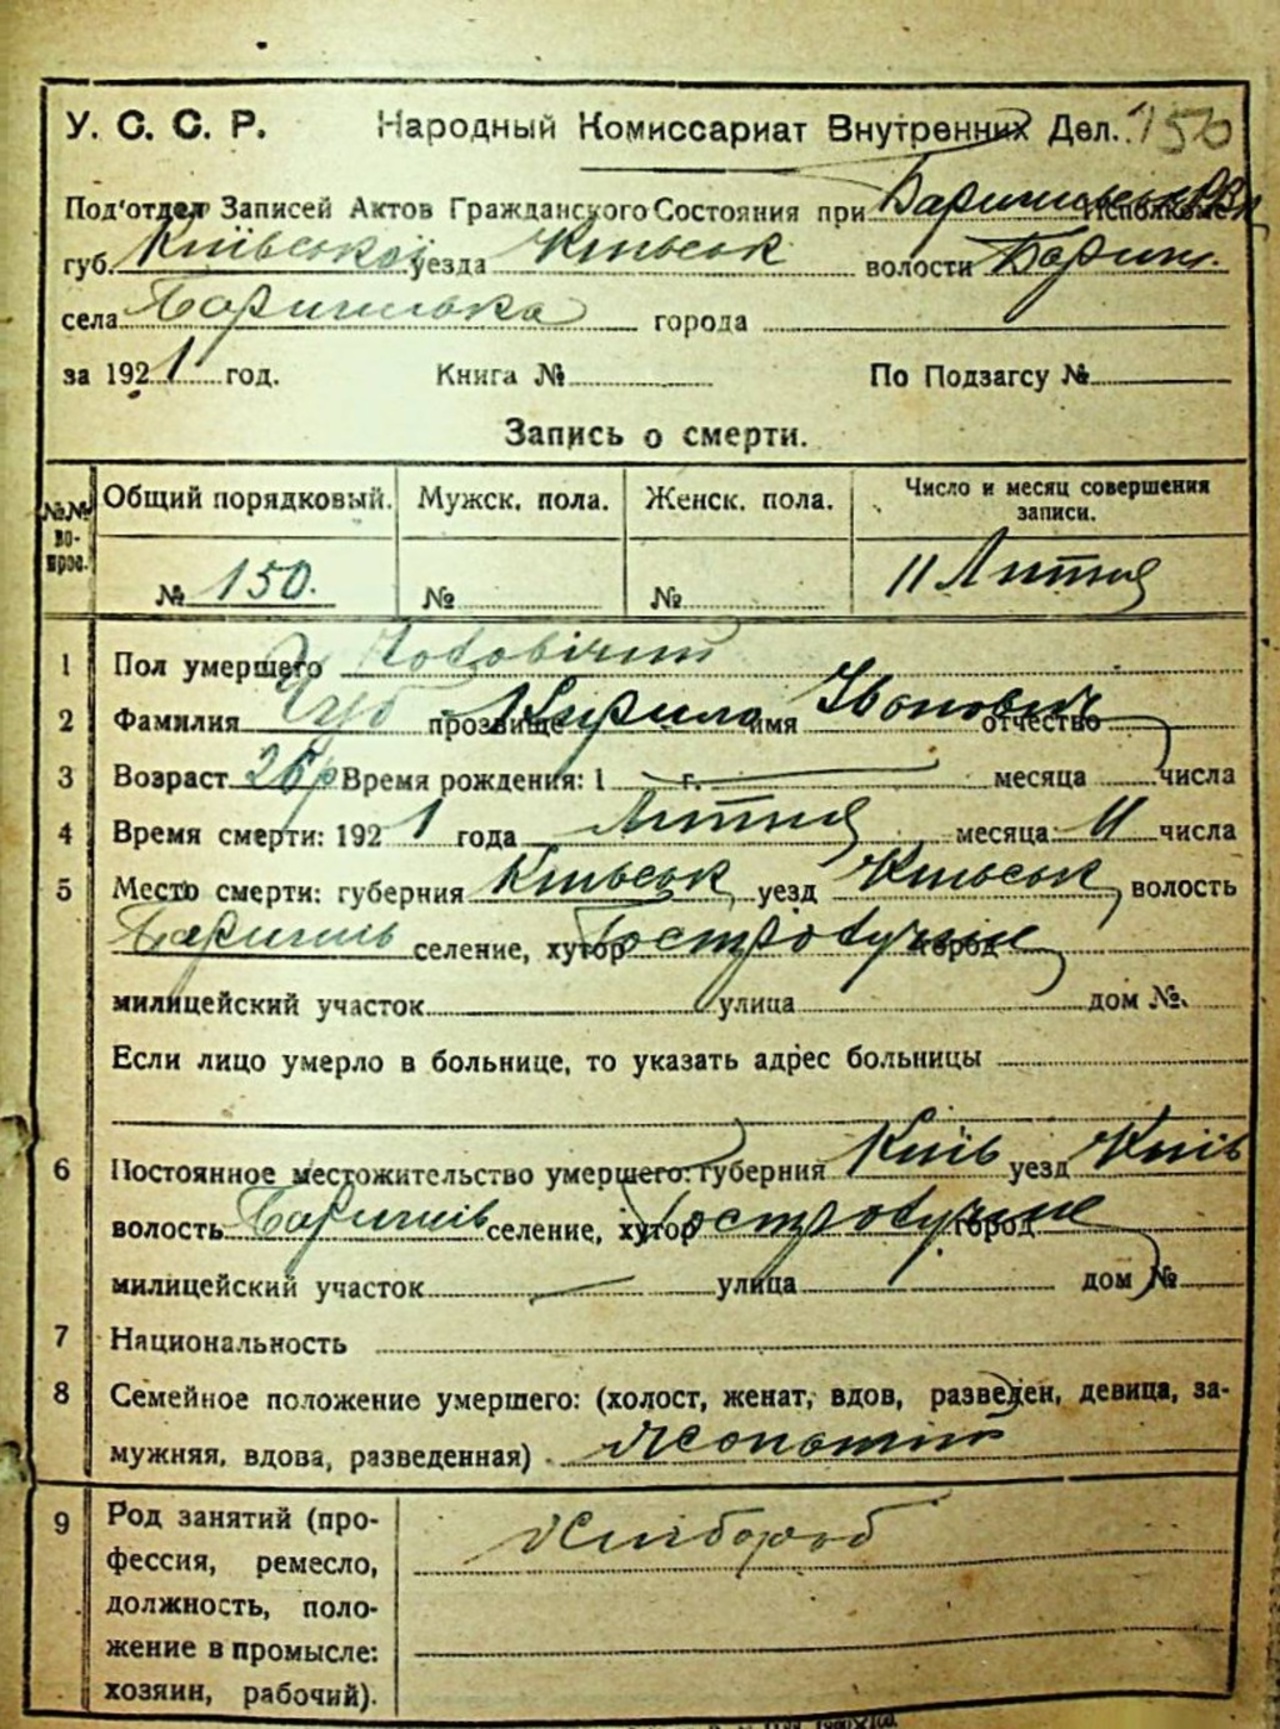 У. С. С. Р. Народный Комиссариат Внутренних Дел. 150
Под'отдел Записей Актов Гражданского Состояния при Исполкоме
губ. Київської уезда Київськ волости Бариш.
села Баришівка города
за 1921 год. Книга № По Подзагсу №
Запись о смерти.
№№ вопрос. Общий порядковый. Мужск. пола. Женск. пола. Число и месяц совершения записи.
№ 150. № № 11 Лютня
1 Пол умершего Чоловічий
2 Фамилия Чуб прозвище Кирило имя Іванович отчество
3 Возраст 26 р Время рождения: 1 г. месяца числа
4 Время смерти: 1921 года Лютня месяца 11 числа
5 Место смерти: губерния Київськ уезд Київськ, волость
Баришів селение, хутор город
милицейский участок улица дом №.
Если лицо умерло в больнице, то указать адрес больницы
6 Постоянное местожительство умершего: губерния Київ уезд Київ
волость Баришів селение, хутор город
милицейский участок улица дом №
7 Национальность
8 Семейное положение умершего: (холост, женат, вдов, разведен, девица, за-
мужняя, вдова, разведенная) Жонатий
9 Род занятий (про-
фессия, ремесло,
должность, поло-
жение в промысле:
хозяин, рабочий).
Хлібороб